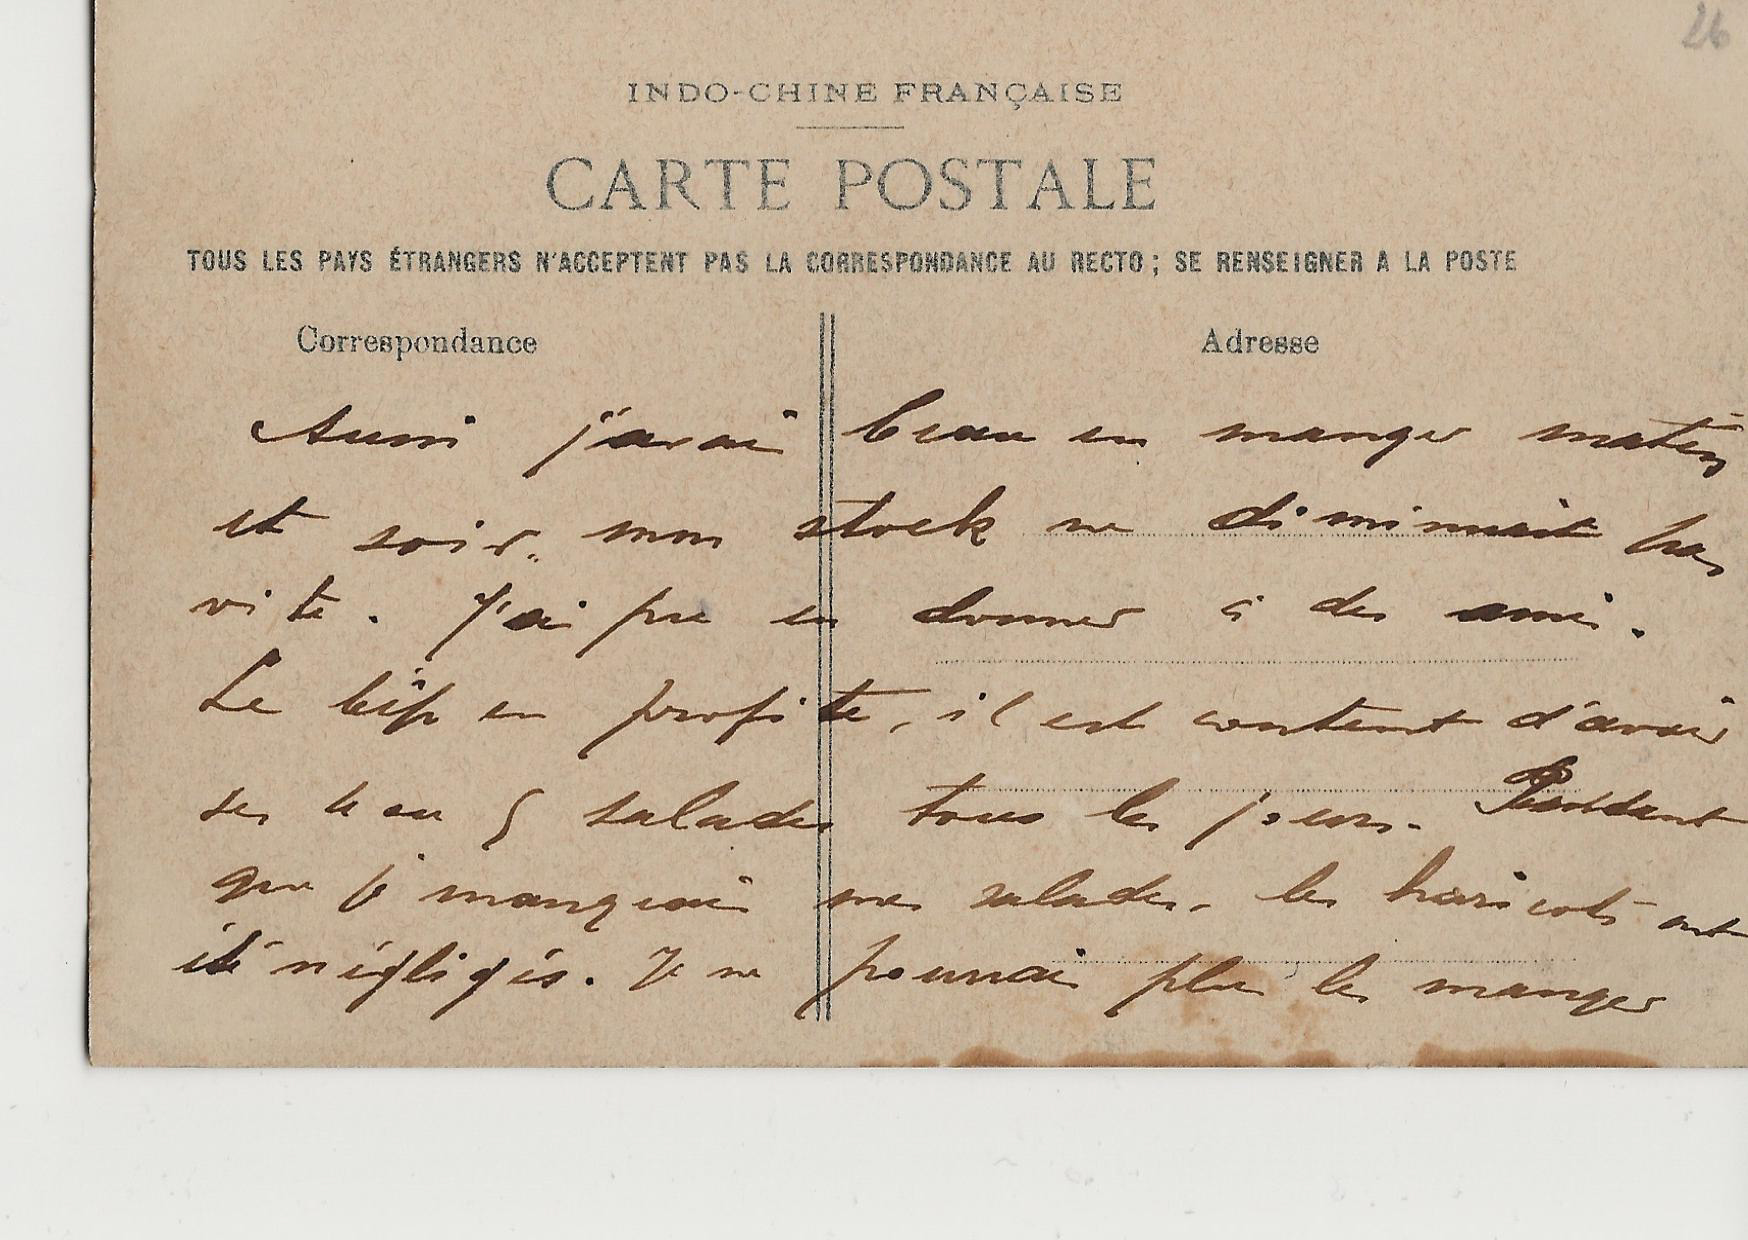 26
INDO-CHINE FRANÇAISE
CARTE POSTALE
TOUS LES PAYS ÉTRANGERS N'ACCEPTENT PAS LA CORRESPONDANCE AU RECTO; SE RENSEIGNER A LA POSTE
Correspondance
Adresse
Aussi j'avais beau en manger matin
et soir, mon stock ne diminuait pas
vite. J'ai pu en donner à des amis.
Le bép en profite, il est content d'avoir
ses 4 ou 5 salades tous les jours. Pendant
que je mangeais mes salades, les haricots ont
été négligés. Je ne pouvais plus les manger